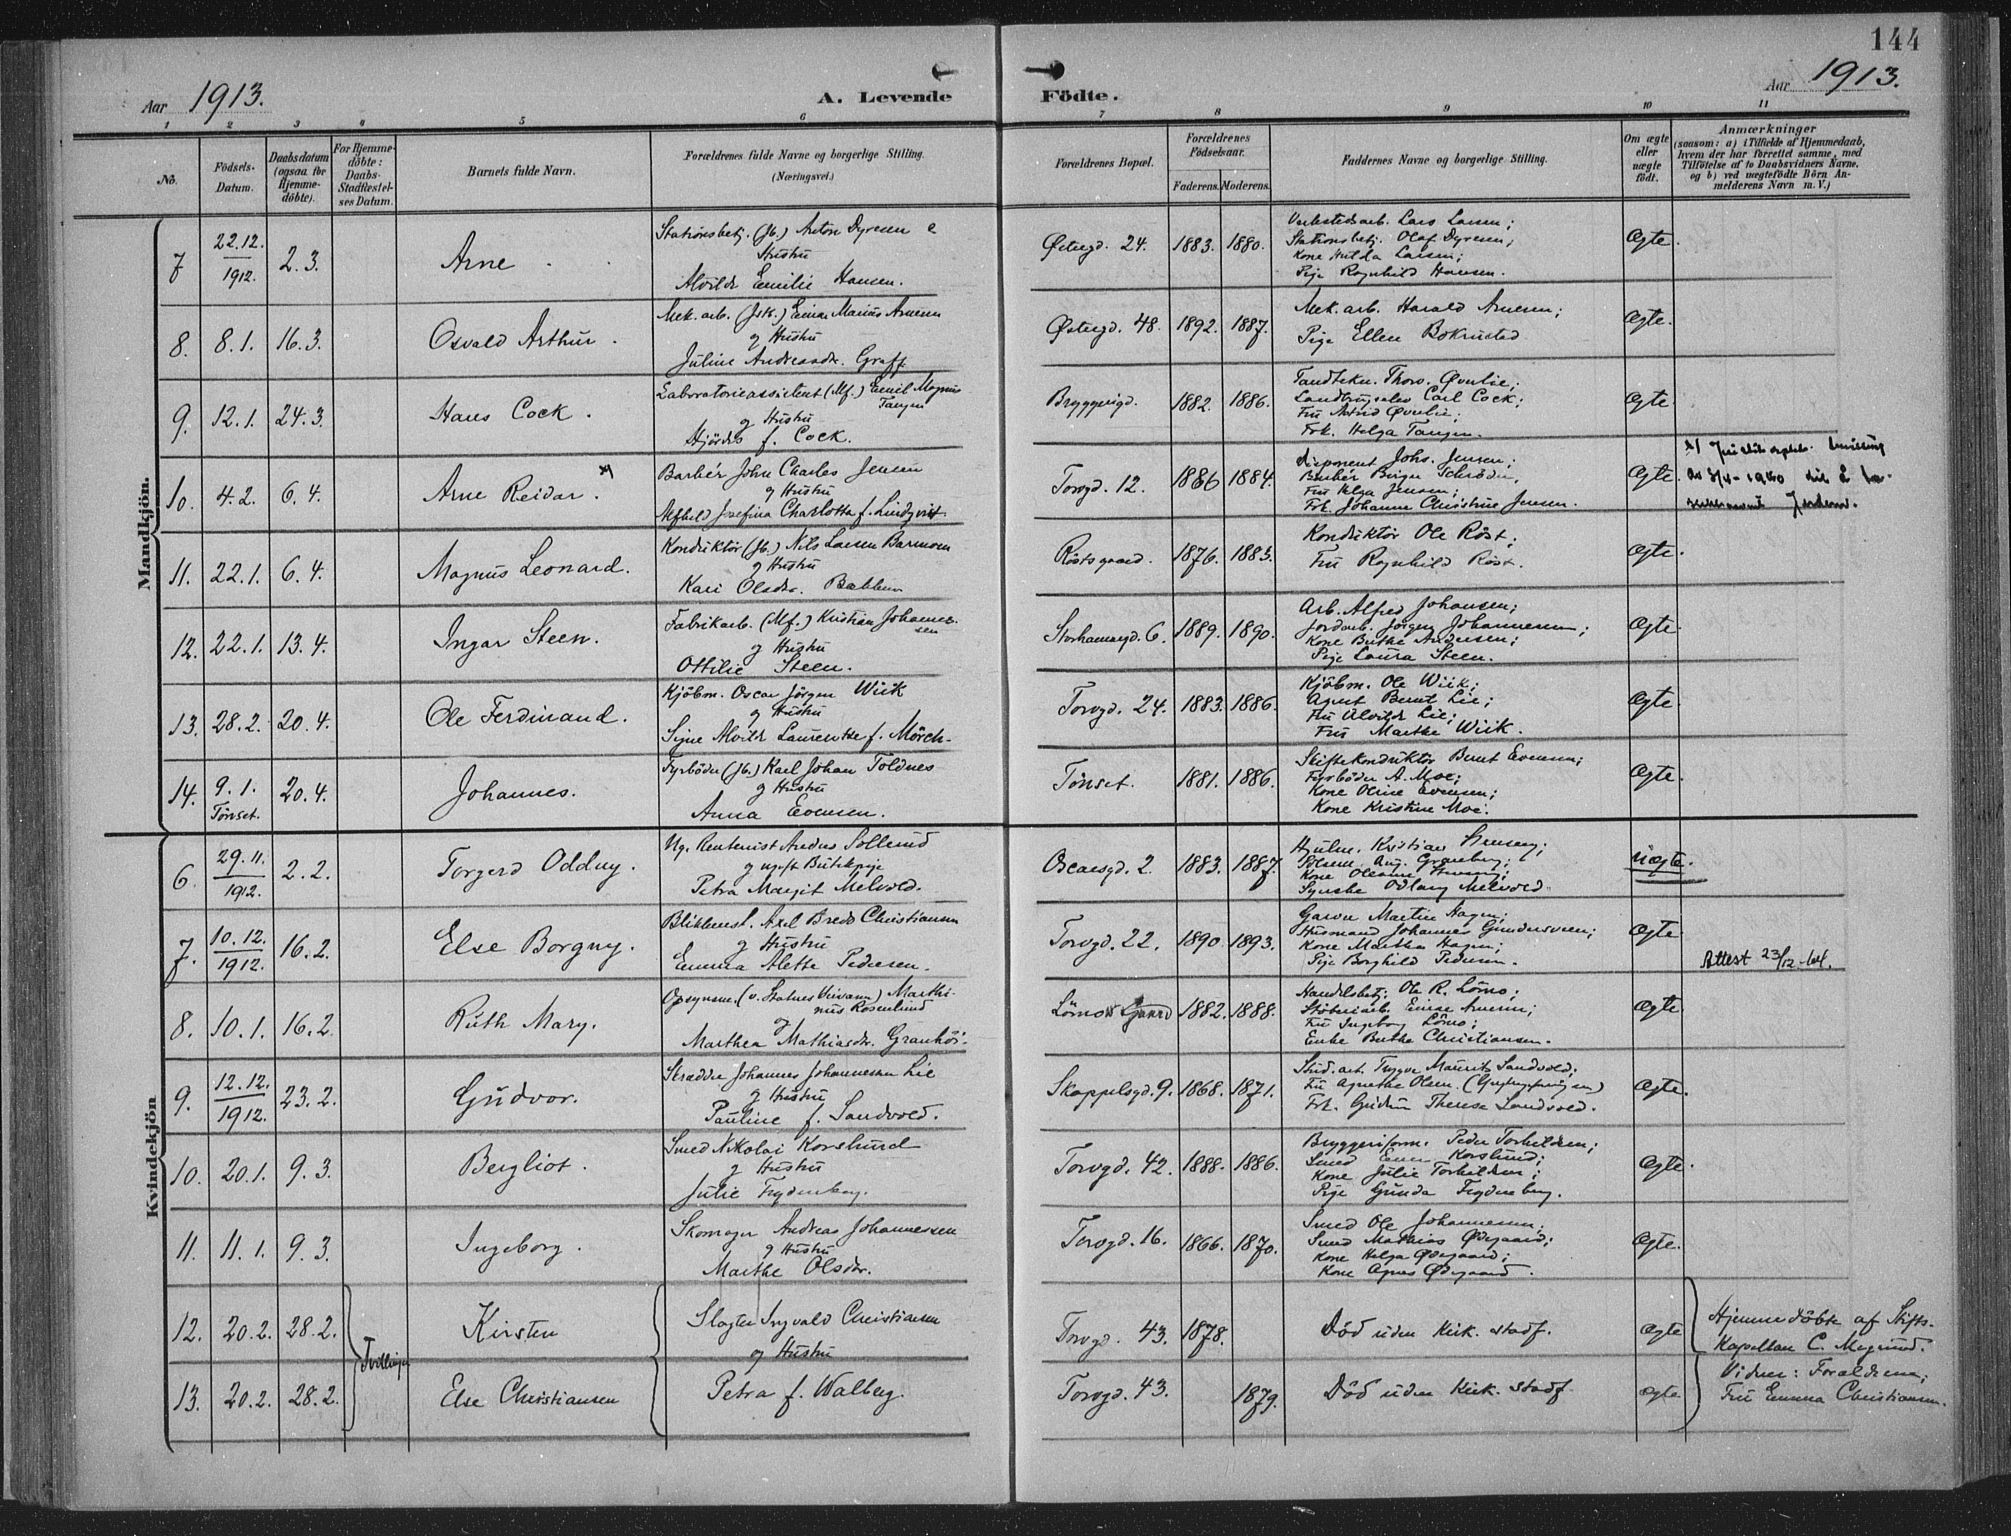 144
Aar 1913.
A. Levende
Födte.
Aar 1913.
1 2 3 4 5 6 7 8 9 10 11
No.
Födsels-Datum.
Daabsdatum (ogsaa for Hjemmedöbte).
For Hjemmedöbte: Daabs-Stadfestelses Datum.
Barnets fulde Navn.
Forældrenes fulde Navne og borgerlige Stilling.
(Næringsvei.)
Forældrenes Bopæl.
Forældrenes Födselsaar.
Faderens. Moderens.
Faddernes Navne og borgerlige Stilling.
Om ægte eller uægte födt.
Anmærkninger
(saasom: a) i Tilfælde af Hjemmedaab, hvem der har forrettet samme, med Tilföielse af to Daabsvidners Navne, og b) ved uægtefödte Börn Anmelderens Navn m. V.)
Mandkjön.
7 22.12. 1912. 2.3. Arne
Stationsbetj. (Jb.) Anton Dyresen
Hustru
Alvilde Emilie Hansen.
Østregd. 24. 1883. 1880.
Verkstedsarb. Lars Larsen;
Stationsbetj. Olaf Dyresen;
Kone Hulda Larsen;
Pige Ragnhild Hansen.
Ægte.
8. 8.1. 16.3. Osvald Arthur.
Mek. arb. Einar Marius Arnesen
og Hustru
Juline Andreasdr. Graff
Østregd. 48. 1892. 1887.
Mek. arb. Harald Arnesen;
Pige Ellen Bokrustad
Ægte.
9. 12.1. 24.3. Hans Cock.
Laboratorieassistent (Mf.) Emil Magnus
Tangen
og Hustru
Hjördis f. Cock.
Bryggerigd. 1882. 1886.
Tandtekn. Thorv. Øverlie;
Carl Cock;
Fru Astrid Øverlie;
Frk. Helga Tangen.
Ægte.
10. 4.2. 6.4. Arne Reidar. x)
Barbér John Charles Jensen
og Hustru
Josefina Charlotta f. Lindqvist.
Torvgd. 12. 1886 1884.
Disponent Johs. Jensen;
Barbér Birger Schrøder,
Fru Helga Jensen;
Frk. Johanne Christine Jensen.
Ægte.
11. 22.1. 6.4. Magnus Leonard.
Konduktör (Jb.) Nils Larsen Barmoen
og Hustru
Kari Olsdr. Bakken
Röstsgaard. 1876. 1883.
Konduktör Ole Röst;
Fru Ragnhild Röst.
Ægte.
12. 22.1. 13.4. Ingar Steen.
Fabrikarb. (Mf.) Kristian Johannessen
og Hustru
Ottilie Steen.
Storhamargd. 6. 1889. 1890.
Arb. Alfred Johansen;
Jordarb. Jörgen Johannessen;
Kone Berthe Andersen;
Pige Laura Steen.
Ægte.
13. 28.2. 20.4. Ole Ferdinand.
Kjöbm. Oscar Jörgen Wiik
og Hustru
Signe Alvilde Laurentze f. Mörch.
Torvgd. 24. 1883. 1886.
Kjöbm. Ole Wiik;
Agent Bernt Lie;
Fru Alvilde Lie;
Fru Marthe Wiik.
Ægte.
14. 9.1. Tönset. 20.4. Johannes.
Fyrböder (Jb.) Karl Johan Toldnes
og Hustru
Anna Evensen.
Tönset. 1881. 1886.
Skiftekonduktör Bernt Evensen;
Fyrböder A. Moe;
Kone Oline Evensen;
Kone Kristine Moe.
Ægte.
Kvindekjön
6. 29.11. 1912. 2.2. Torgerd Oddny.
Ug. Rentenist Anders Sollerud
og ugift Butikpige
Petra Margit Melvold.
Oscarsgd. 2. 1883. 1887.
Hjulm. Kristian
Aug. Granberg;
Kone Oleanne
Odlaug Melvold.
Uægte.
7. 10.12. 1912. 16.2. Else Borgny.
Blikkensl. Axel Bredo Christiansen
og Hustru
Emma Alette Pedersen.
Torvgd. 22. 1890. 1893.
Garver Martin Hagen;
Husmand Johannes Gundersveen;
Kone Marthea Hagen;
Pige Borghild Pedersen.
Ægte
Attest 23/12-64.
8. 10.1. 16.2. Ruth Mary.
Opsynsm. (v. Statens Veivæsen) Marthinus Rosenlund
og
Marthea Mathiasdr. Granhöi.
Lömos Gaard 1882. 1888.
Handelsbetj. Ole R. Lömo;
Støberiarb. Einar Arnesen;
Fru Ingeborg Lömo;
Enke Berthe Christiansen.
Ægte
9. 12.12. 1912. 23.2. Gudvor.
Skrædder Johannes Johannesen Lie
og Hustru
Pauline f. Sandvold.
Skappelsgd. 9. 1868. 1871.
Stud. art. Trygve Maurits Sandvold;
Fru Agnethe Olsen.
Frk. Gudrun Therese Sandvold.
Ægte.
10. 20.1. 9.3. Bergliot.
Smed Nikolai Korslund
og Hustru
Julie Frydenberg.
Torvgd. 42. 1888. 1886.
Bryggeriform. Peder Torkildsen;
Smed Korslund;
Kone Julie Torkildsen;
Pige Gunda Frydenberg.
Ægte.
11. 11.1. 9.3. Ingeborg.
Skomager Andreas Johannessen
og Hustru
Marthe Olsdr.
Torvgd. 16. 1866. 1870.
Smed Ole Johannesen;
Smed Mathias Ødegaard;
Kone Helga Ødegaard;
Kone Agnes Ødegaard.
Ægte.
12. 20.2. 28.2. Kirsten
Tvillinger
Slagter Ingvald Christiansen
og Hustru
Torvgd. 43. 1878.
Död uden Kirk. stadf.
Ægte
Hjemmedöbte af Stifts-
Kapellan C. Magnus.
Vidner: Forældrene;
Fru Emma Christiansen.
13. 20.2. 28.2. Else Christiansen
Petra f. Walberg.
Torvgd. 43. 1879.
Död uden Kirk. stadf.
ægte